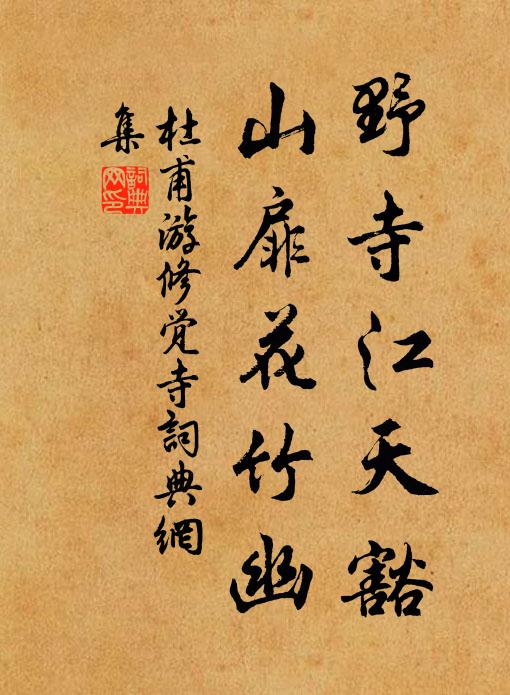 野寺江天豁
山扉花竹幽
杜甫游修觉寺詞典網
集
詞典網印